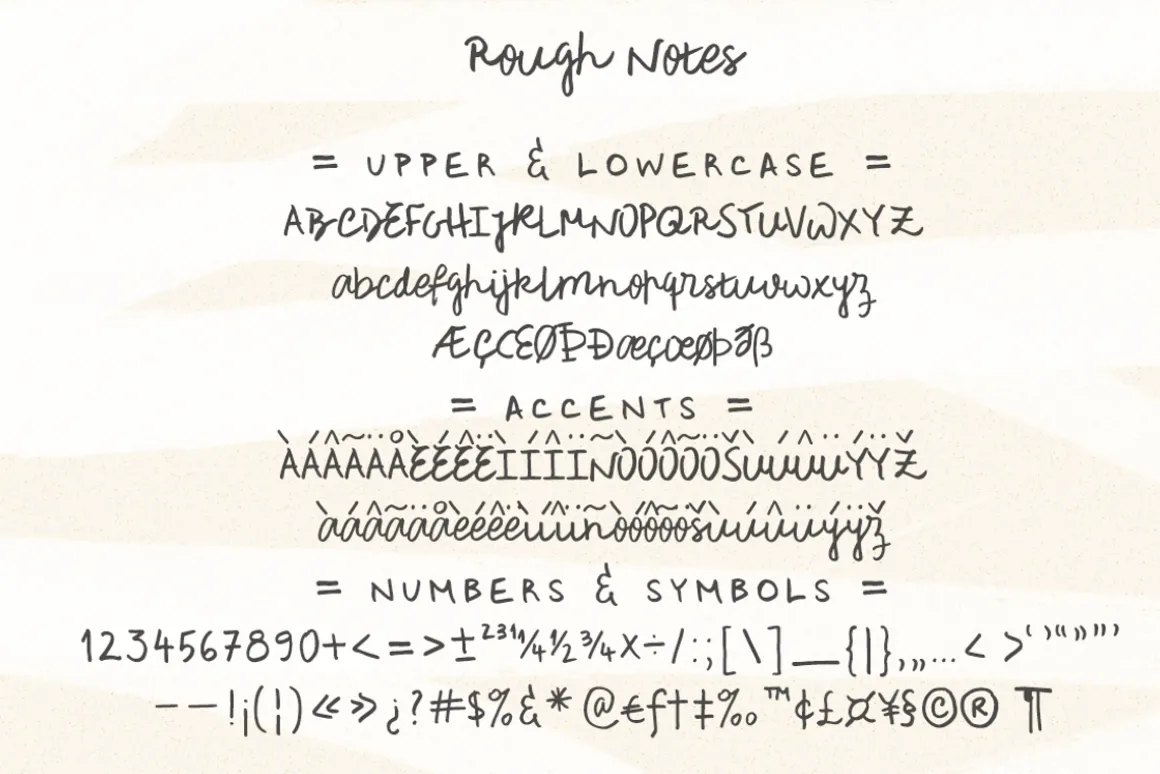 Rough Notes
= UPPER & LOWERCASE =
ABCDEFGHIJKLMNOPQRSTUVWXYZ
abcdefghijklmnopqrstuvwxyz
ÆÇŒØÞÐæçœøþðß
= ACCENTS =
ÀÁÂÃÄÅÈÉÊËÌÍÎÏÑÒÓÔÕÖŠÙÚÛÜÝŸŽ
àáâãäåèéêëìíîïñòóôõöšùúûüýÿž
= NUMBERS & SYMBOLS =
1234567890+<=>±²³¹¼½¾×÷/:;[\]_{|},„…‹›‘’“”"'
–—!¡(¦)«»¿?#$%&*@€ƒ†‡‰™¢£¤¥§©®¶